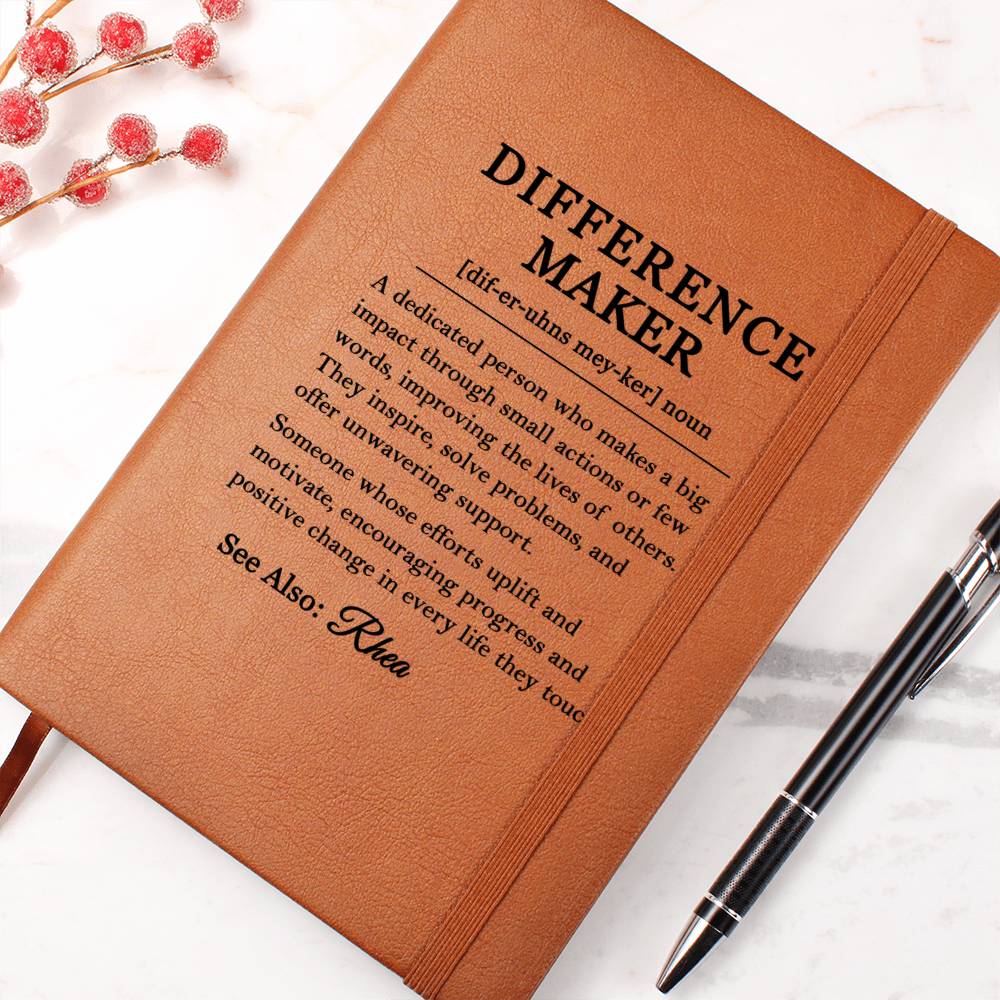 DIFFERENCE
MAKER
[dif-er-uhns mey-ker] noun
A dedicated person who makes a big
impact through small actions or few
words, improving the lives of others.
They inspire, solve problems, and
offer unwavering support.
Someone whose efforts uplift and
motivate, encouraging progress and
positive change in every life they touc
See Also: Rhea